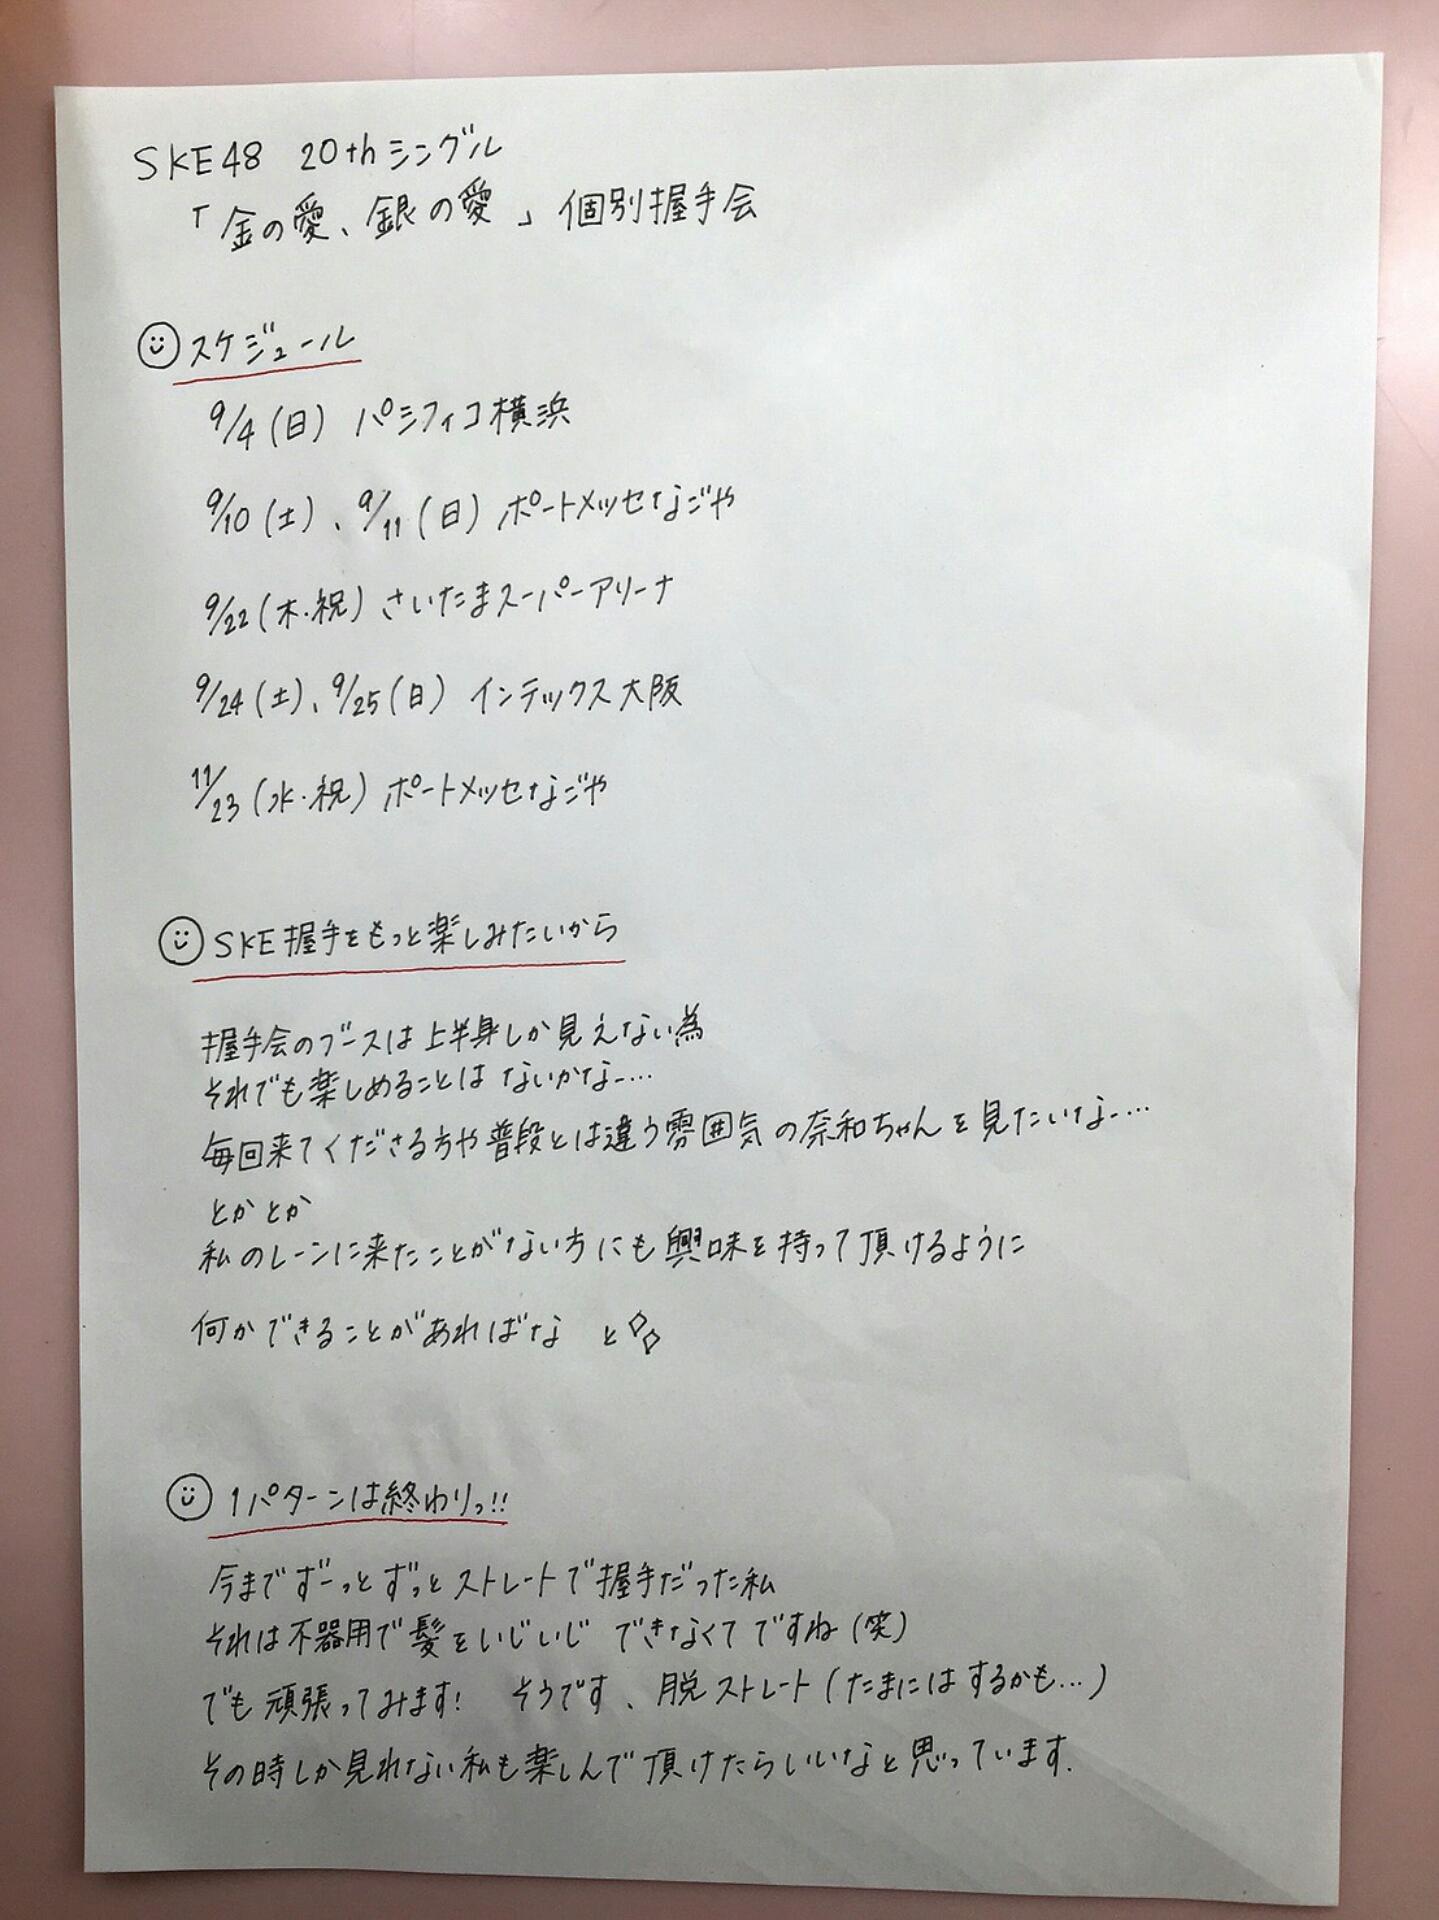 SKE48 20thシングル
「金の愛、銀の愛」個別握手会
スケジュール
9/4(日) パシフィコ横浜
9/10(土)、9/11(日) ポートメッセなごや
9/22(木・祝) さいたまスーパーアリーナ
9/24(土)、9/25(日) インテックス大阪
11/23(水・祝) ポートメッセなごや
SKE握手をもっと楽しみたいから
握手会のブースは上半身しか見えない為
それでも楽しめることはないかなー…
毎回来てくださる方や普段とは違う雰囲気の奈和ちゃんを見たいなー…
とかとか
私のレーンに来たことがない方にも興味を持って頂けるように
何かできることがあればな と
1パターンは終わりっ!!
今までずーっとずっとストレートで握手だった私
それは不器用で髪をいじいじ できなくてですね(笑)
でも頑張ってみます! そうです、脱ストレート(たまにはするかも…)
その時しか見れない私も楽しんで頂けたらいいなと思っています.